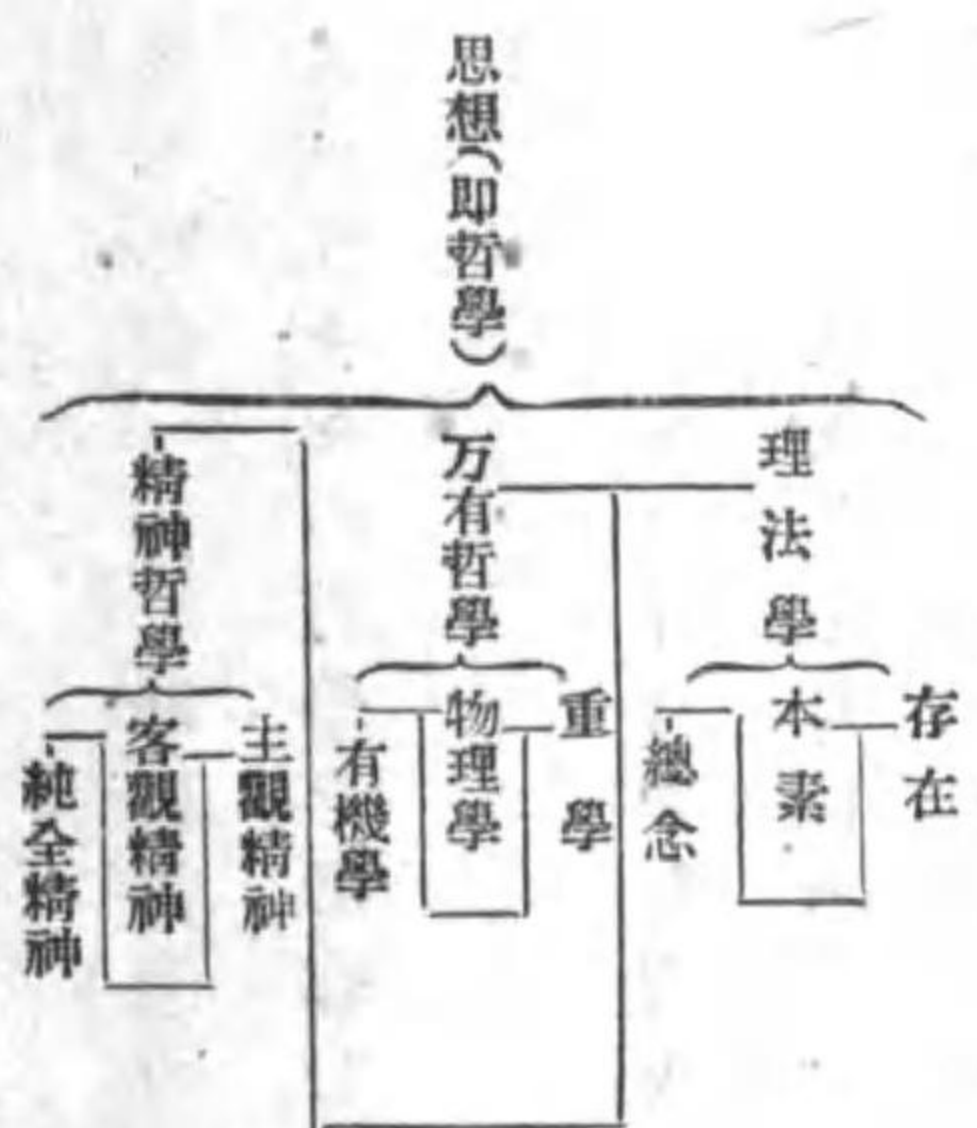 思想(即哲學)
理法學
存在
本素
總念
万有哲學
重學
物理學
有機學
精神哲學
主觀精神
客觀精神
純全精神